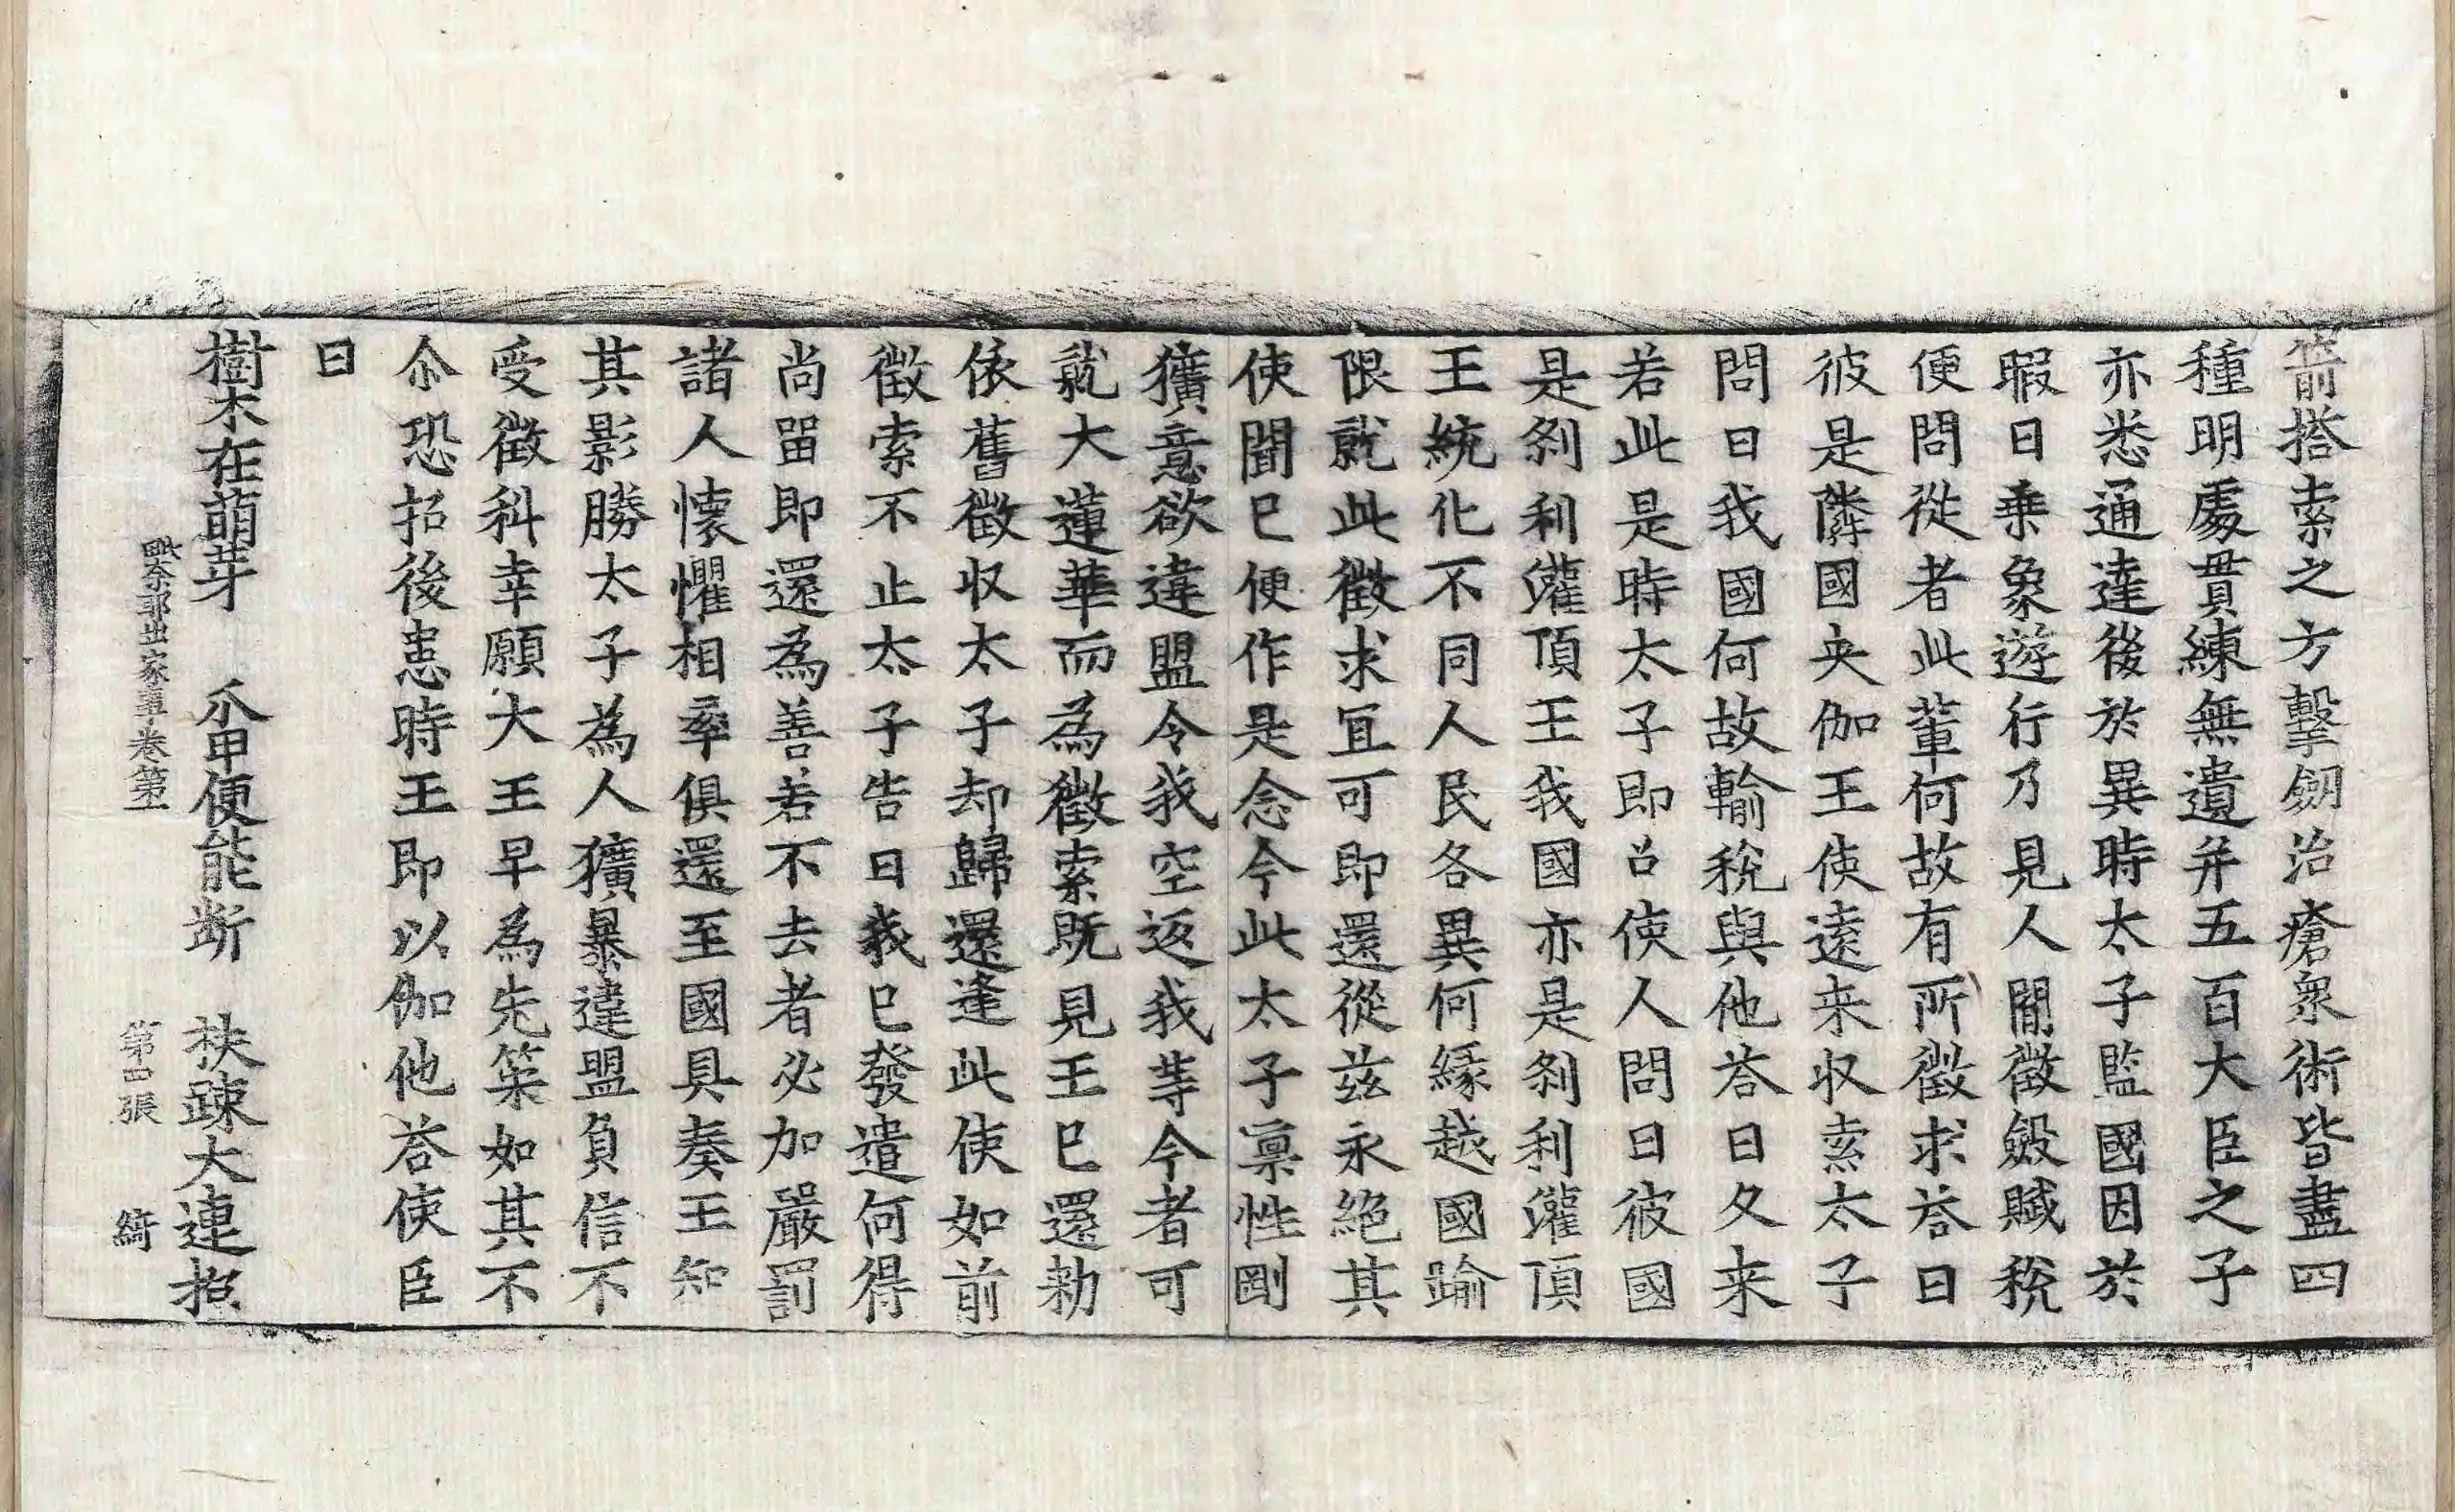 箭搭索之方擊劒治瘡衆術皆盡四
種明處貫練無遺并五百大臣之子
亦悉通達後於異時太子監國因於
暇日乗象遊行乃見人閒徵斂賦稅
便問從者此輩何故有所徵求荅曰
彼是隣國央伽王使遠来收索太子
問曰我國何故輸稅與他荅曰久来
若此是時太子即召使人問曰彼國
是刹利灌頂王我國亦是刹利灌頂
王統化不同人民各異何緣越國踰
限就此徵求冝可即還從兹永絕其
使聞已便作是念今此太子禀性剛
獷意欲違盟令我空返我等今者可
就大蓮華而為徵索既見王已還勑
依舊徵収太子却歸還逢此使如前
徵索不止太子告曰我已發遣何得
尚畱即還為善若不去者必加嚴罰
諸人懷懼相率俱還至國具奏王知
其影勝太子為人獷暴違盟負信不
受徵科幸願大王早為先策如其不
尒恐招後恚時王即以伽他荅使臣
曰
樹木在萌芽　爪甲便能斷　扶踈大連招
毗奈耶出家事卷第一　第四張　綺